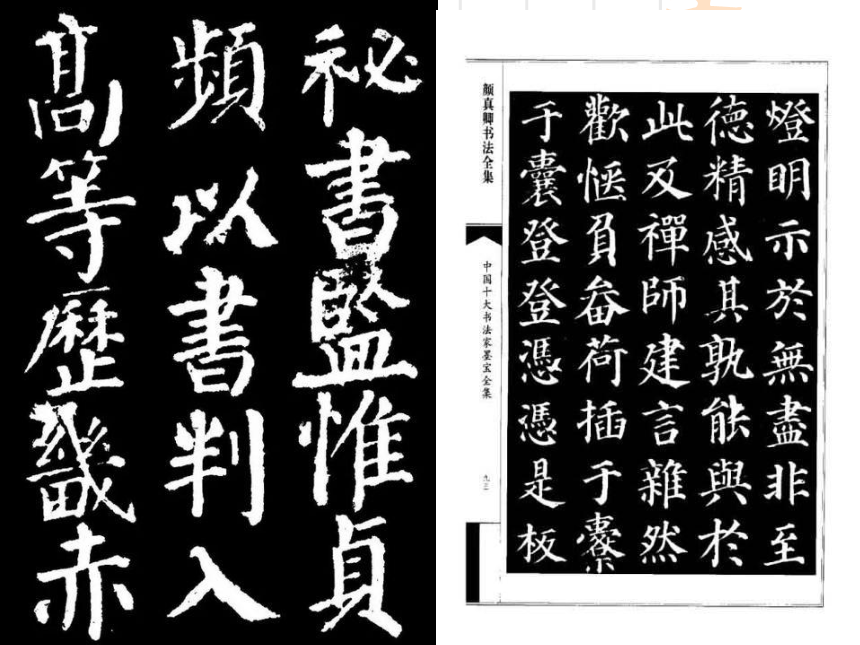 祕書監惟貞
頻以書判入
高等歷畿赤
燈明示於無盡非至
德精感其孰能與於
此及禪師建言雜然
歡愜負畚荷插于橐
于囊登登憑憑是板
颜真卿书法全集
中国十大书法家墨宝全集